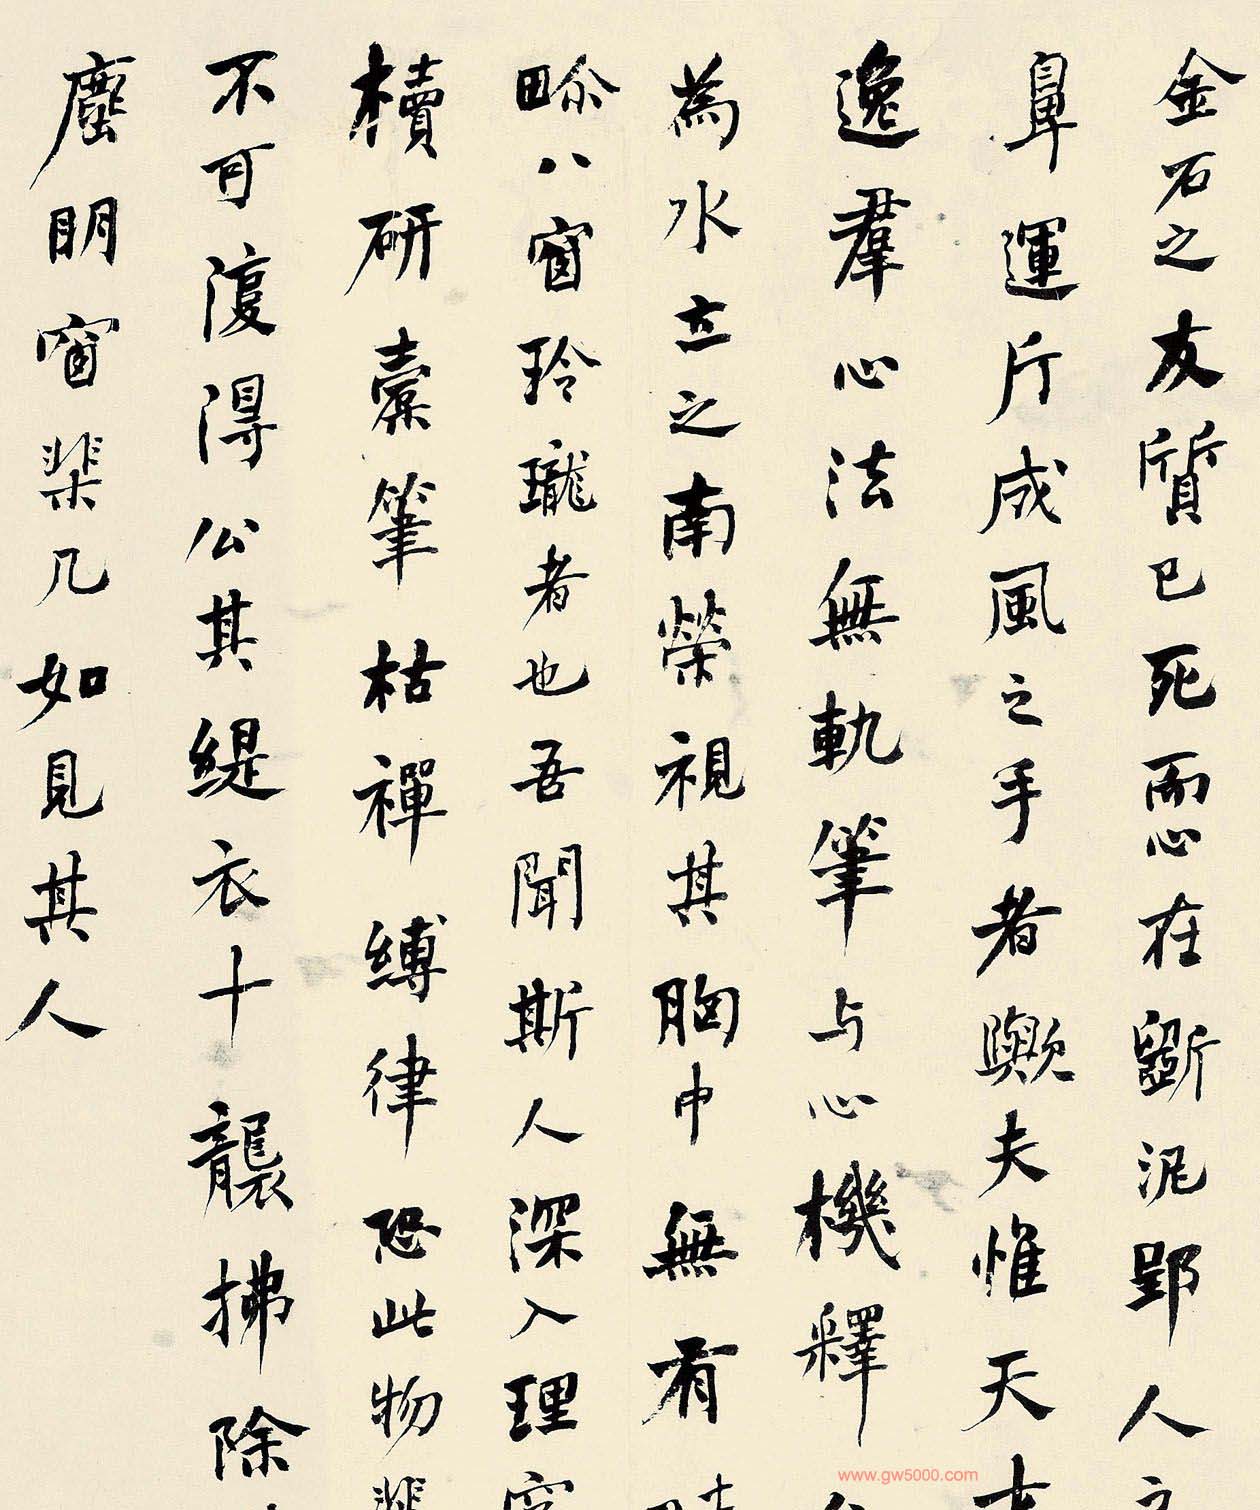 金石之友質已死而心在斵泥郢人之
鼻運斤成風之手者歟夫惟天才
逸羣心法無軌筆与心機釋
為水立之南榮視其胸中無有畦
畛八窗玲瓏者也吾聞斯人深入理窟
櫝研囊筆枯禪縛律恐此物
不可復得公其緹衣十襲拂除
塵明窗棐几如見其人
www.gw5000.com